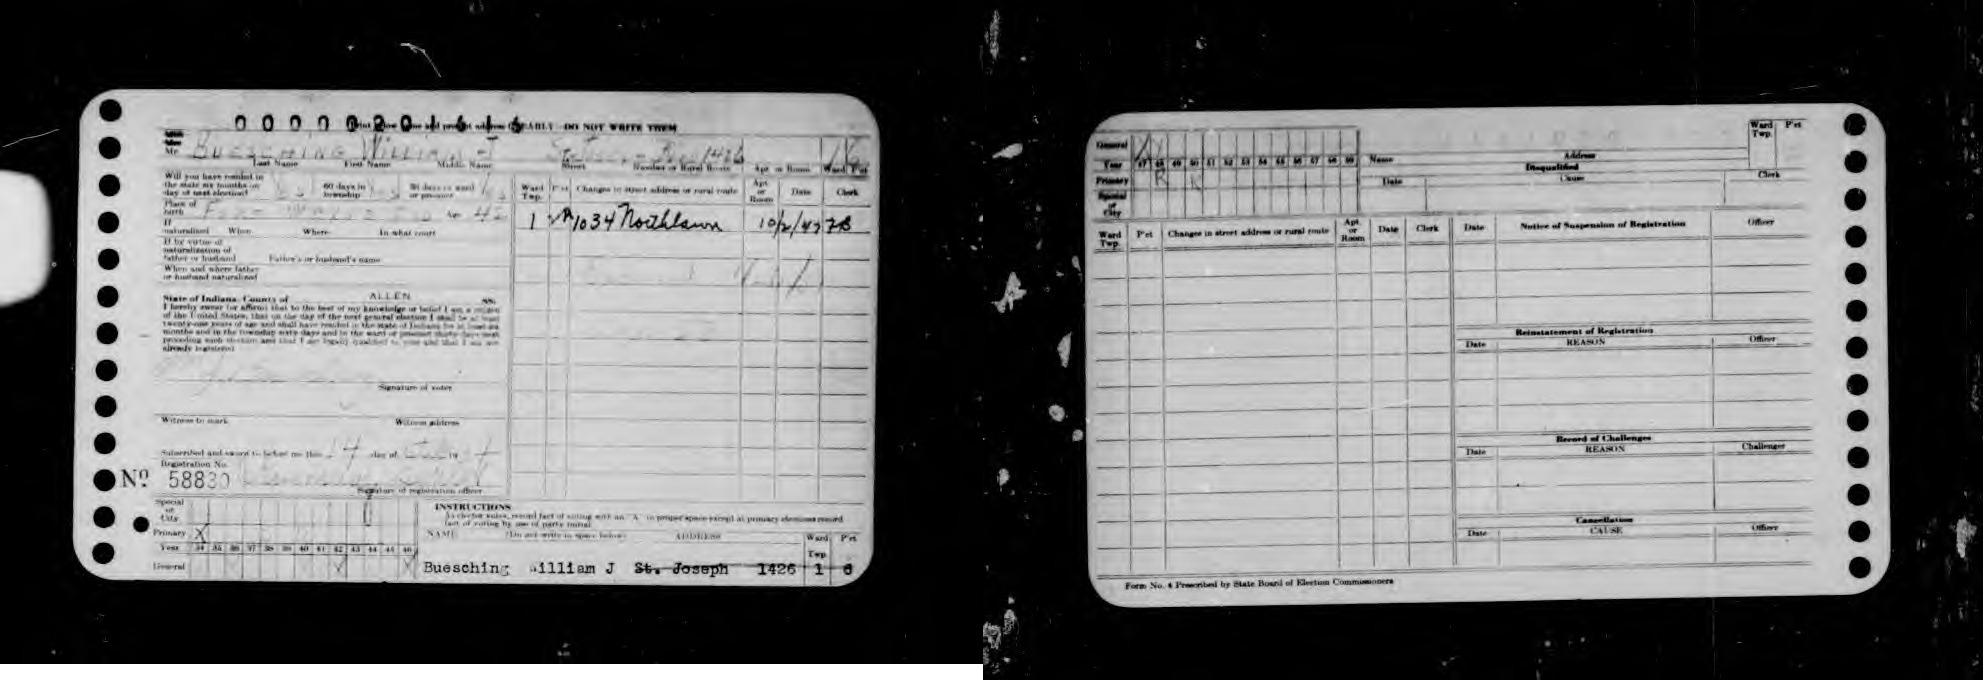 Print below name and present address CLEARLY - DO NOT WRITE THEM
Mr. BUESCHING WILLIAM J 1426
Last Name First Name Middle Name Street Number or Rural Route Apt. or Room Ward P'ct
Will you have resided in the state six months on day of next election? 60 days in township 30 days in ward or precinct
Place of birth FORT WAYNE IND Age 42
If naturalized When Where In what court
If by virtue of naturalization of father or husband Father's or husband's name
When and where father or husband naturalized
State of Indiana, County of ALLEN SS.
I hereby swear (or affirm) that to the best of my knowledge or belief I am a citizen
of the United States, that on the day of the next general election I shall be at least
twenty-one years of age and shall have resided in the state of Indiana for at least six
months and in the township sixty days and in the ward or precinct thirty days next
preceding such election and that I am legally qualified to vote and that I am not
already registered
Signature of voter
Witness to mark Witness address
Subscribed and sworn to before me this 14 day of
Registration No.
Nº 58830
Signature of registration officer
Ward Twp. P'ct Changes in street address or rural route Apt. or Room Date Clerk
1 1034 Northlawn 10/2/47
Special or City
Primary X
Year 34 35 36 37 38 39 40 41 42 43 44 45 46
General
INSTRUCTIONS
As elector votes, record fact of voting with an "X" in proper space except at primary elections record
fact of voting by use of party initial
NAME (Do not write in space below) ADDRESS Ward Twp. P'ct
Buesching William J St. Joseph 1426 1 6
General
Year 47 48 49 50 51 52 53 54 55 56 57 58 59
Primary R R
Special or City
Name Address Ward Twp. P'ct
Disqualified
Date Cause Clerk
Ward Twp. P'ct Changes in street address or rural route Apt. or Room Date Clerk
Date Notice of Suspension of Registration Officer
Reinstatement of Registration
Date REASON Officer
Record of Challenges
Date REASON Challenger
Cancellation
Date CAUSE Officer
Form No. 4 Prescribed by State Board of Election Commissioners